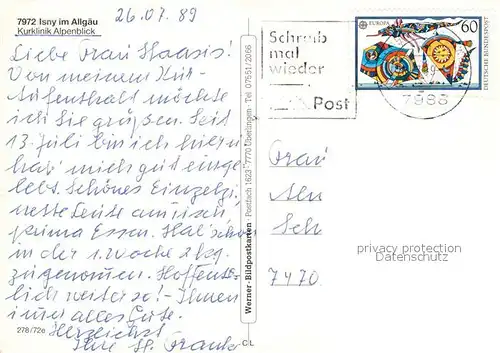 7972 Isny im Allgäu
Kurklinik Alpenblick
26.07.89
Liebe Frau Haasis!
Von meinem Kur-
Aufenthalt möchte
ich Sie grüßen. Seit
13. Juli bin ich hier u.
hab' mich gut einge
lebt. Schönes Einzelzi,
nette Leute am Tisch,
prima Essen. Hab' schon
in der 1. Woche 2 kg.
zugenommen. Hoffent-
lich weiter so! - Ihnen
immer alles Gute.
Herzlichst
Ihre H. Frank
278/72e
Werner-Bildpostkarten Postfach 1623 7770 Überlingen Tel. 07551/2066
CL
Schreib
mal
wieder
Post
EUROPA
60
DEUTSCHE BUNDESPOST
7988
Frau
7470
privacy protection
Datenschutz